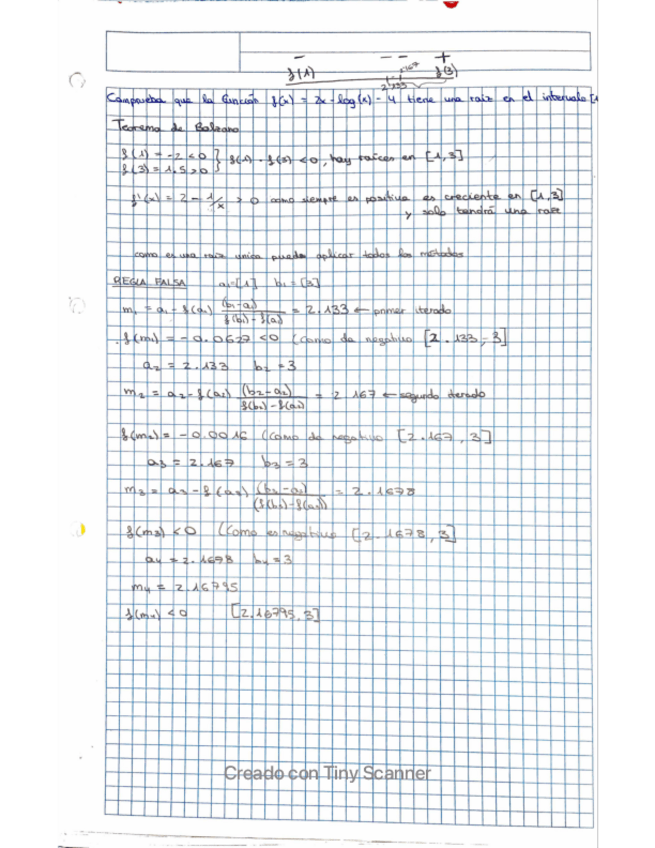 − − − +
f(1) 2.167 f(3)
2.133
Comprueba que la función f(x) = 2x - log(x) - 4 tiene una raíz en el intervalo [1
Teorema de Bolzano
f(1) = -2 < 0 } f(1) · f(3) < 0, hay raíces en [1,3]
f(3) = 1.5 > 0
f'(x) = 2 - 1/x > 0 como siempre es positiva es creciente en [1,3]
y solo tendrá una raíz
como es una raíz única puedo aplicar todos los métodos
REGLA FALSA a₁=[1] b₁=[3]
m₁ = a₁ - f(a₁) (b₁-a₁)/(f(b₁)-f(a₁)) = 2.133 ← primer iterado
f(m₁) = -0.0627 < 0 (como da negativo [2.133, 3]
a₂ = 2.133 b₂ = 3
m₂ = a₂ - f(a₂) (b₂-a₂)/(f(b₂)-f(a₂)) = 2.167 ← segundo iterado
f(m₂) = -0.0016 (como da negativo [2.167, 3]
a₃ = 2.167 b₃ = 3
m₃ = a₃ - f(a₃) (b₃-a₃)/(f(b₃)-f(a₃)) = 2.1678
f(m₃) < 0 (como es negativo [2.1678, 3]
a₄ = 2.1678 b₄ = 3
m₄ = 2.16795
f(m₄) < 0 [2.16795, 3]
Creado con Tiny Scanner